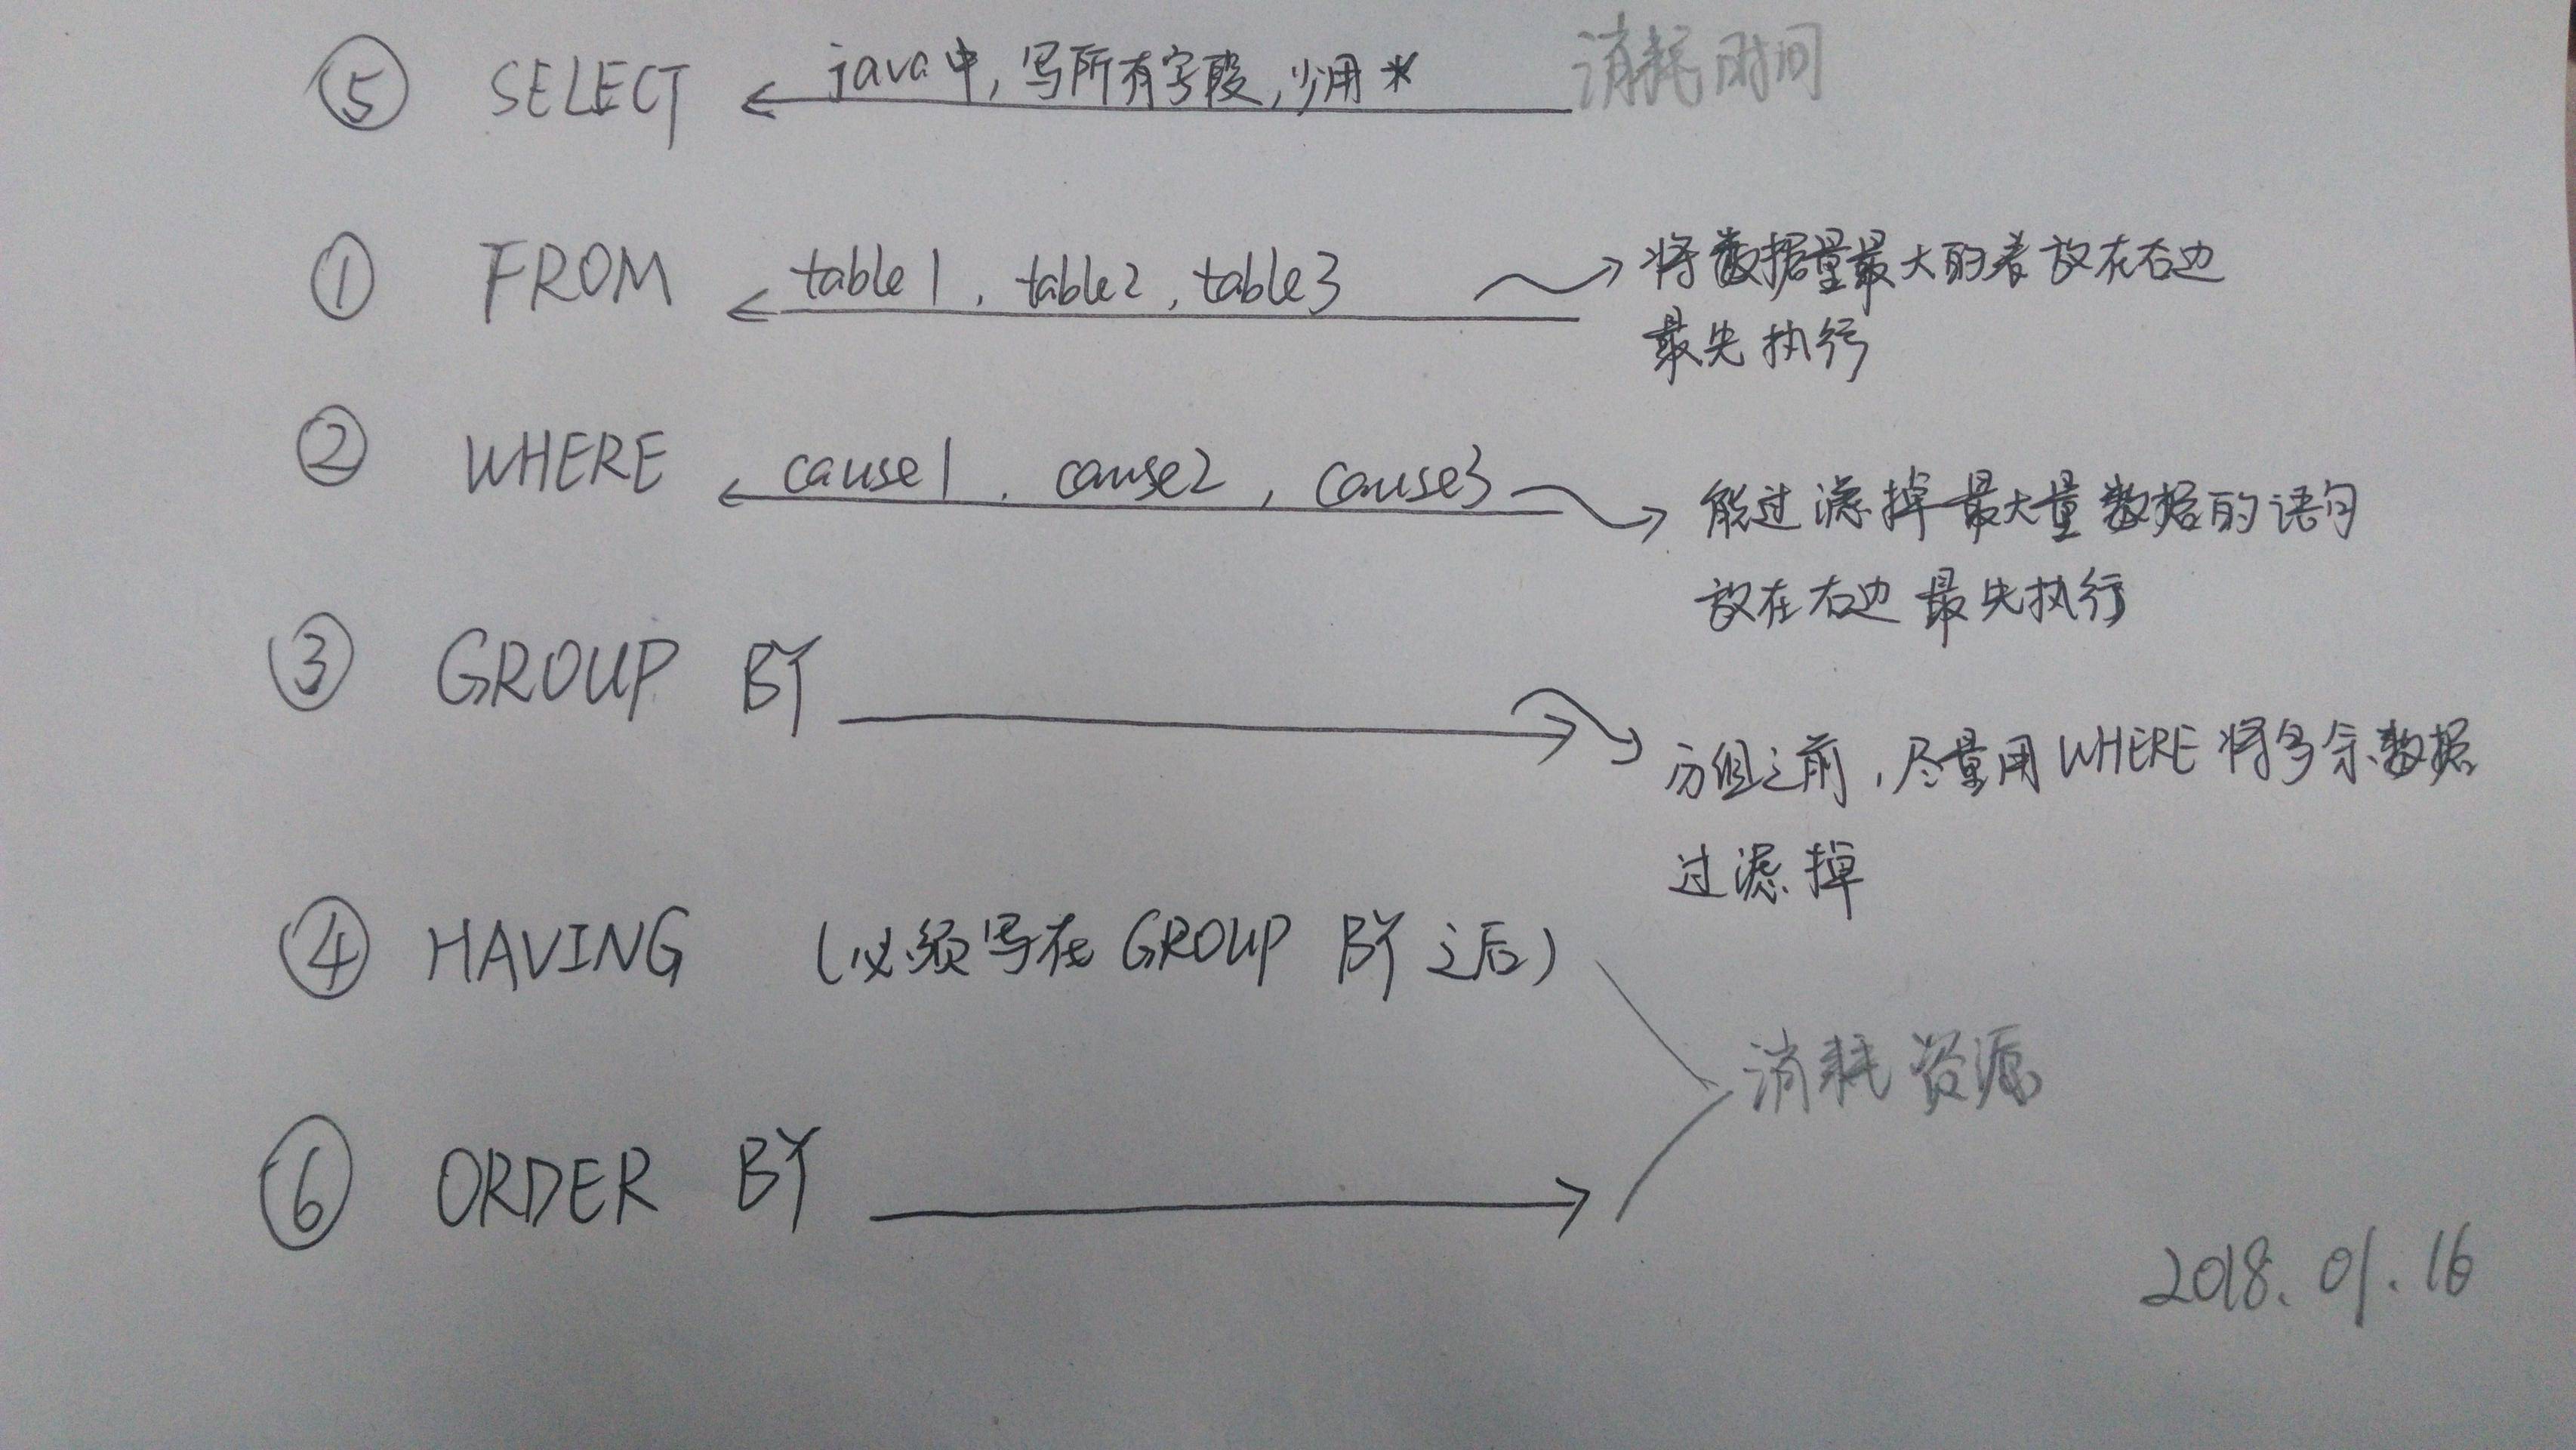 ⑤ SELECT java中,写所有字段,少用* 消耗时间
① FROM table1, table2, table3 将数据量最大的表放在右边
最先执行
② WHERE cause1, cause2, cause3 能过滤掉最大量数据的语句
放在右边最先执行
③ GROUP BY
分组之前,尽量用WHERE将多余数据
过滤掉
④ HAVING (必须写在GROUP BY之后)
消耗资源
⑥ ORDER BY
2018.01.16